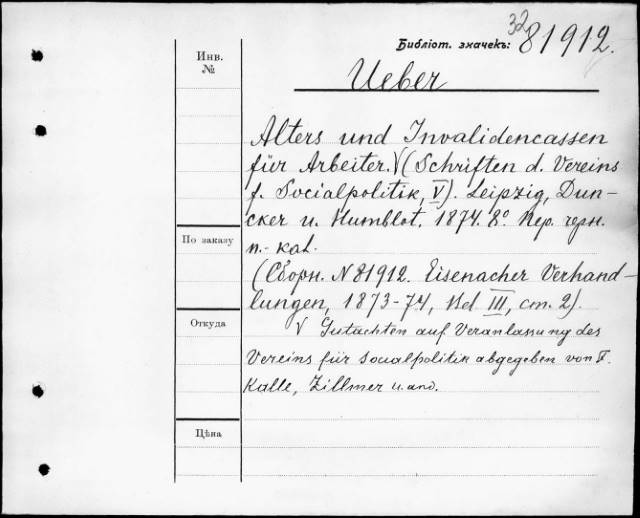 Библіот. значекъ: 32 81912.
Инв.
№
Ueber
Alters und Invalidencassen
für Arbeiter. V (Schriften d. Vereins
f. Socialpolitik, V). Leipzig, Dun-
cker u. Humblot. 1874. 8º. Пер. черн.
п.- kal.
(Сборн. N 81912. Eisenacher Verhand-
lungen, 1873-74, Bd III, ст. 2).
V Gutachten auf Veranlassung des
Vereins für Socialpolitik abgegeben von F.
Kalle, Zillmer u. and.
По заказу
Откуда
Цѣна